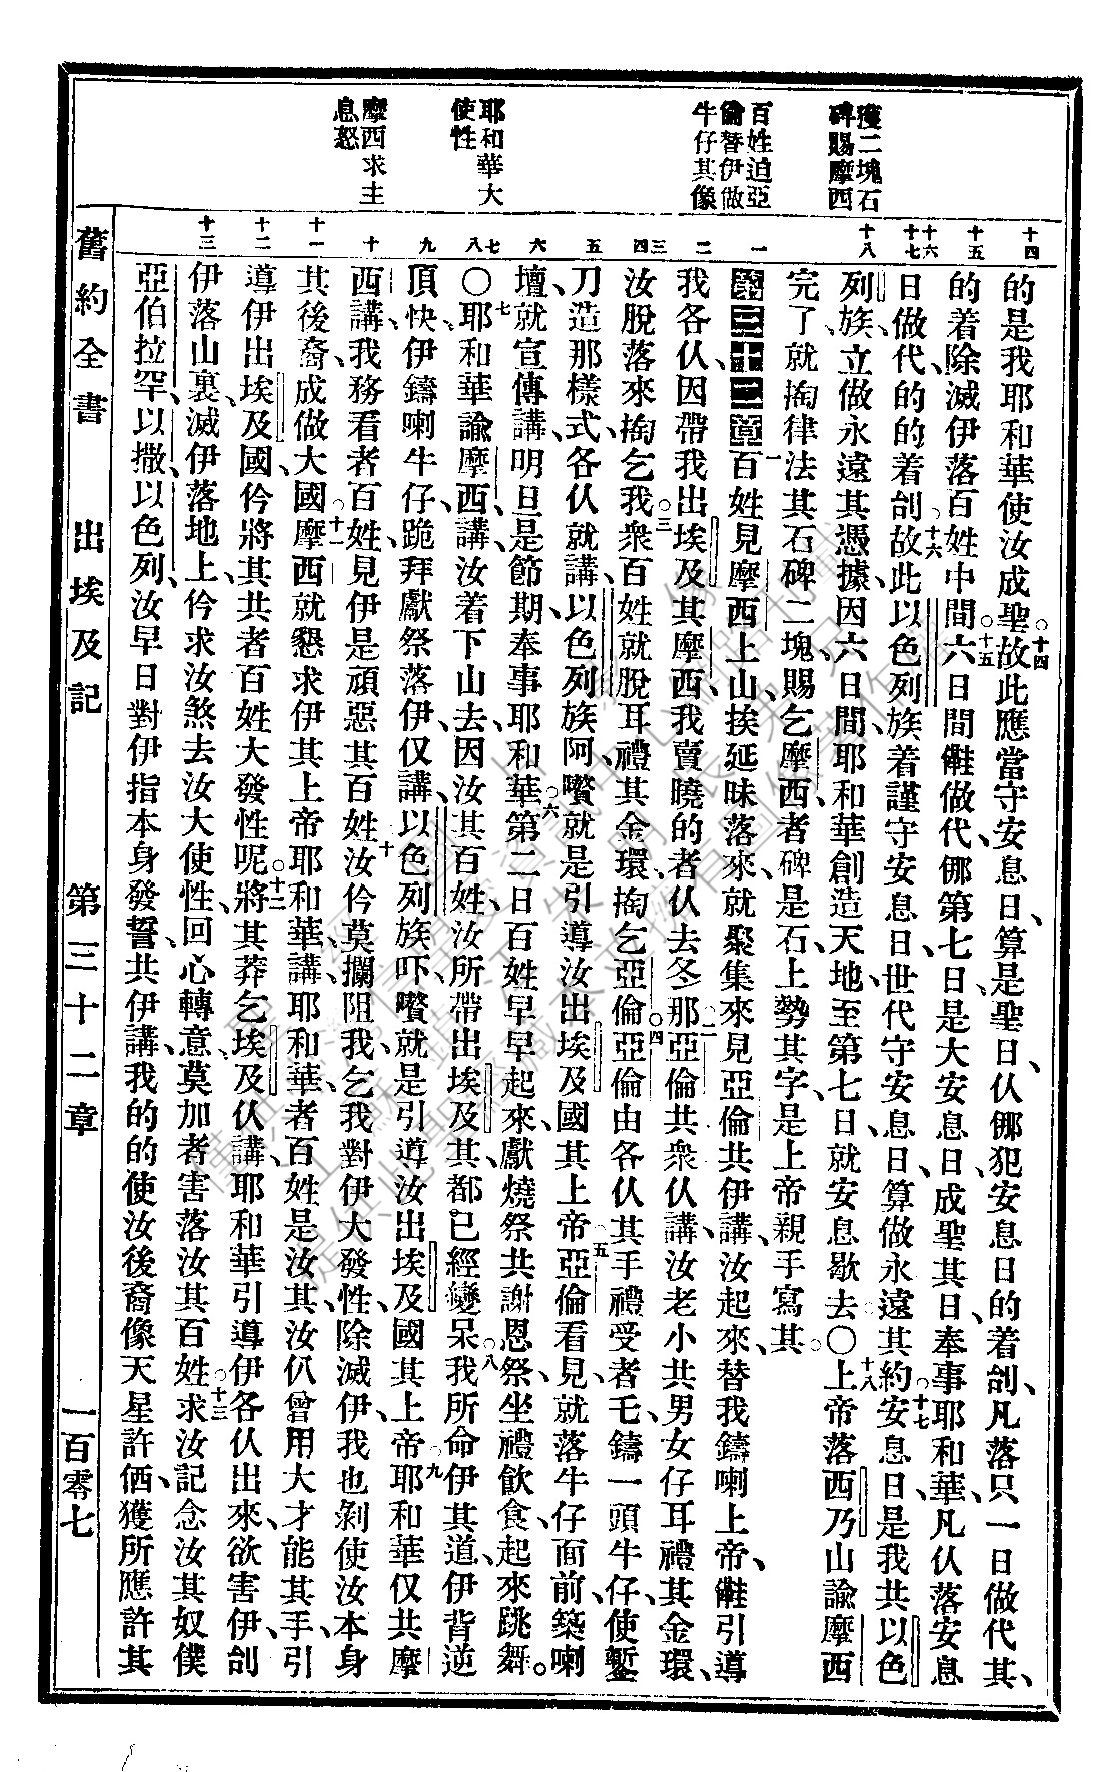 獲二塊石
碑賜摩西
百姓迫亞
倫替伊做
牛仔其像
耶和華大
使性
摩西求主
息怒
十四
十五
十六
十七
十八
一
二
三
四
五
六
七
八
九
十
十一
十二
十三
的是我耶和華使汝成聖。十四故此應當守安息日、算是聖日、仈𪜶犯安息日的着刣、凡落只一日做代其、
的着除滅伊落百姓中間。十五六日間做代、第七日是大安息日、成聖其日、奉事耶和華、凡仈落安息
日做代的的着刣。十六故此以色列族着謹守安息日、世代守安息日、算做永遠其約。十七安息日是我共以色
列族、立做永遠其憑據、因六日間、耶和華創造天地、至第七日就安息歇去○十八上帝落西乃山諭摩西
完了、就掏律法其石碑二塊、賜乞摩西、者碑是石、上勢其字、是上帝親手寫其。
第三十二章一百姓見摩西上山、挨延昧落來、就聚集來見亞倫、共伊講、汝起來、替我鑄喇上帝、引導
我各仈、因帶我出埃及其摩西、我賣曉的者仈去冬那。二亞倫共衆仈講、汝老小共男女仔耳禮其金環、
汝脫落來、掏乞我。三衆百姓就脫耳禮其金環、掏乞亞倫。四亞倫由各仈其手禮受者乇、鑄一頭牛仔、使鏨
刀造那樣式、各仈就講、以色列族阿、嚽就是引導汝出埃及國其上帝。五亞倫看見、就落牛仔面前、築喇
壇、就宣傳講、明旦是節期、奉事耶和華。六第二日百姓早早起來、獻燒祭共謝恩祭、坐禮飲食、起來跳舞。
○七耶和華諭摩西講、汝着下山去、因汝其百姓、汝所帶出埃及其、都已經變呆。八我所命伊其道、伊背逆
頂快、伊鑄喇牛仔、跪拜獻祭落伊、仅講、以色列族吓、嚽就是引導汝出埃及國其上帝。九耶和華仅共摩
西講、我務看者百姓、見伊是頑惡其百姓。十汝仱莫攔阻我、乞我對伊大發性、除滅伊、我也剝使汝本身
其後裔、成做大國。十一摩西就懇求伊其上帝耶和華、講、耶和華、者百姓是汝其、汝仈曾用大才能其手、引
導伊出埃及國、仱將其共者百姓大發性呢。十二將其莽乞埃及仈講、耶和華引導伊各仈出來、欲害伊、刣
伊落山裏、滅伊落地上、仱求汝煞去汝大使性、回心轉意、莫加者害落汝其百姓。十三求汝記念汝其奴僕
亞伯拉罕、以撒、以色列、汝早日對伊指本身發誓、共伊講、我的的使汝後裔像天星許価、獲所應許其
舊約全書　出埃及記　第三十二章　一百零七